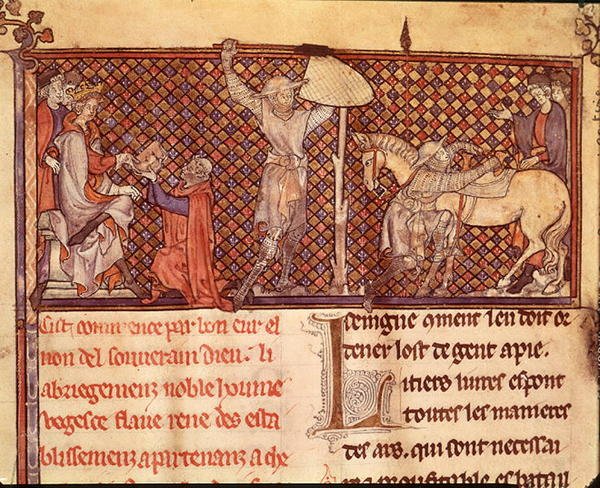 Cist commence par bon eur el
non del souverain dieu. li
abriegemenz noble home
vegesce flaue rene des esta
blissemenz apartenanz a che
seingne qment len doit or
dener lost de gent a pie.
Li tiers livres espont
toutes les manieres
des ars. qui sont necessai
profitable es batail